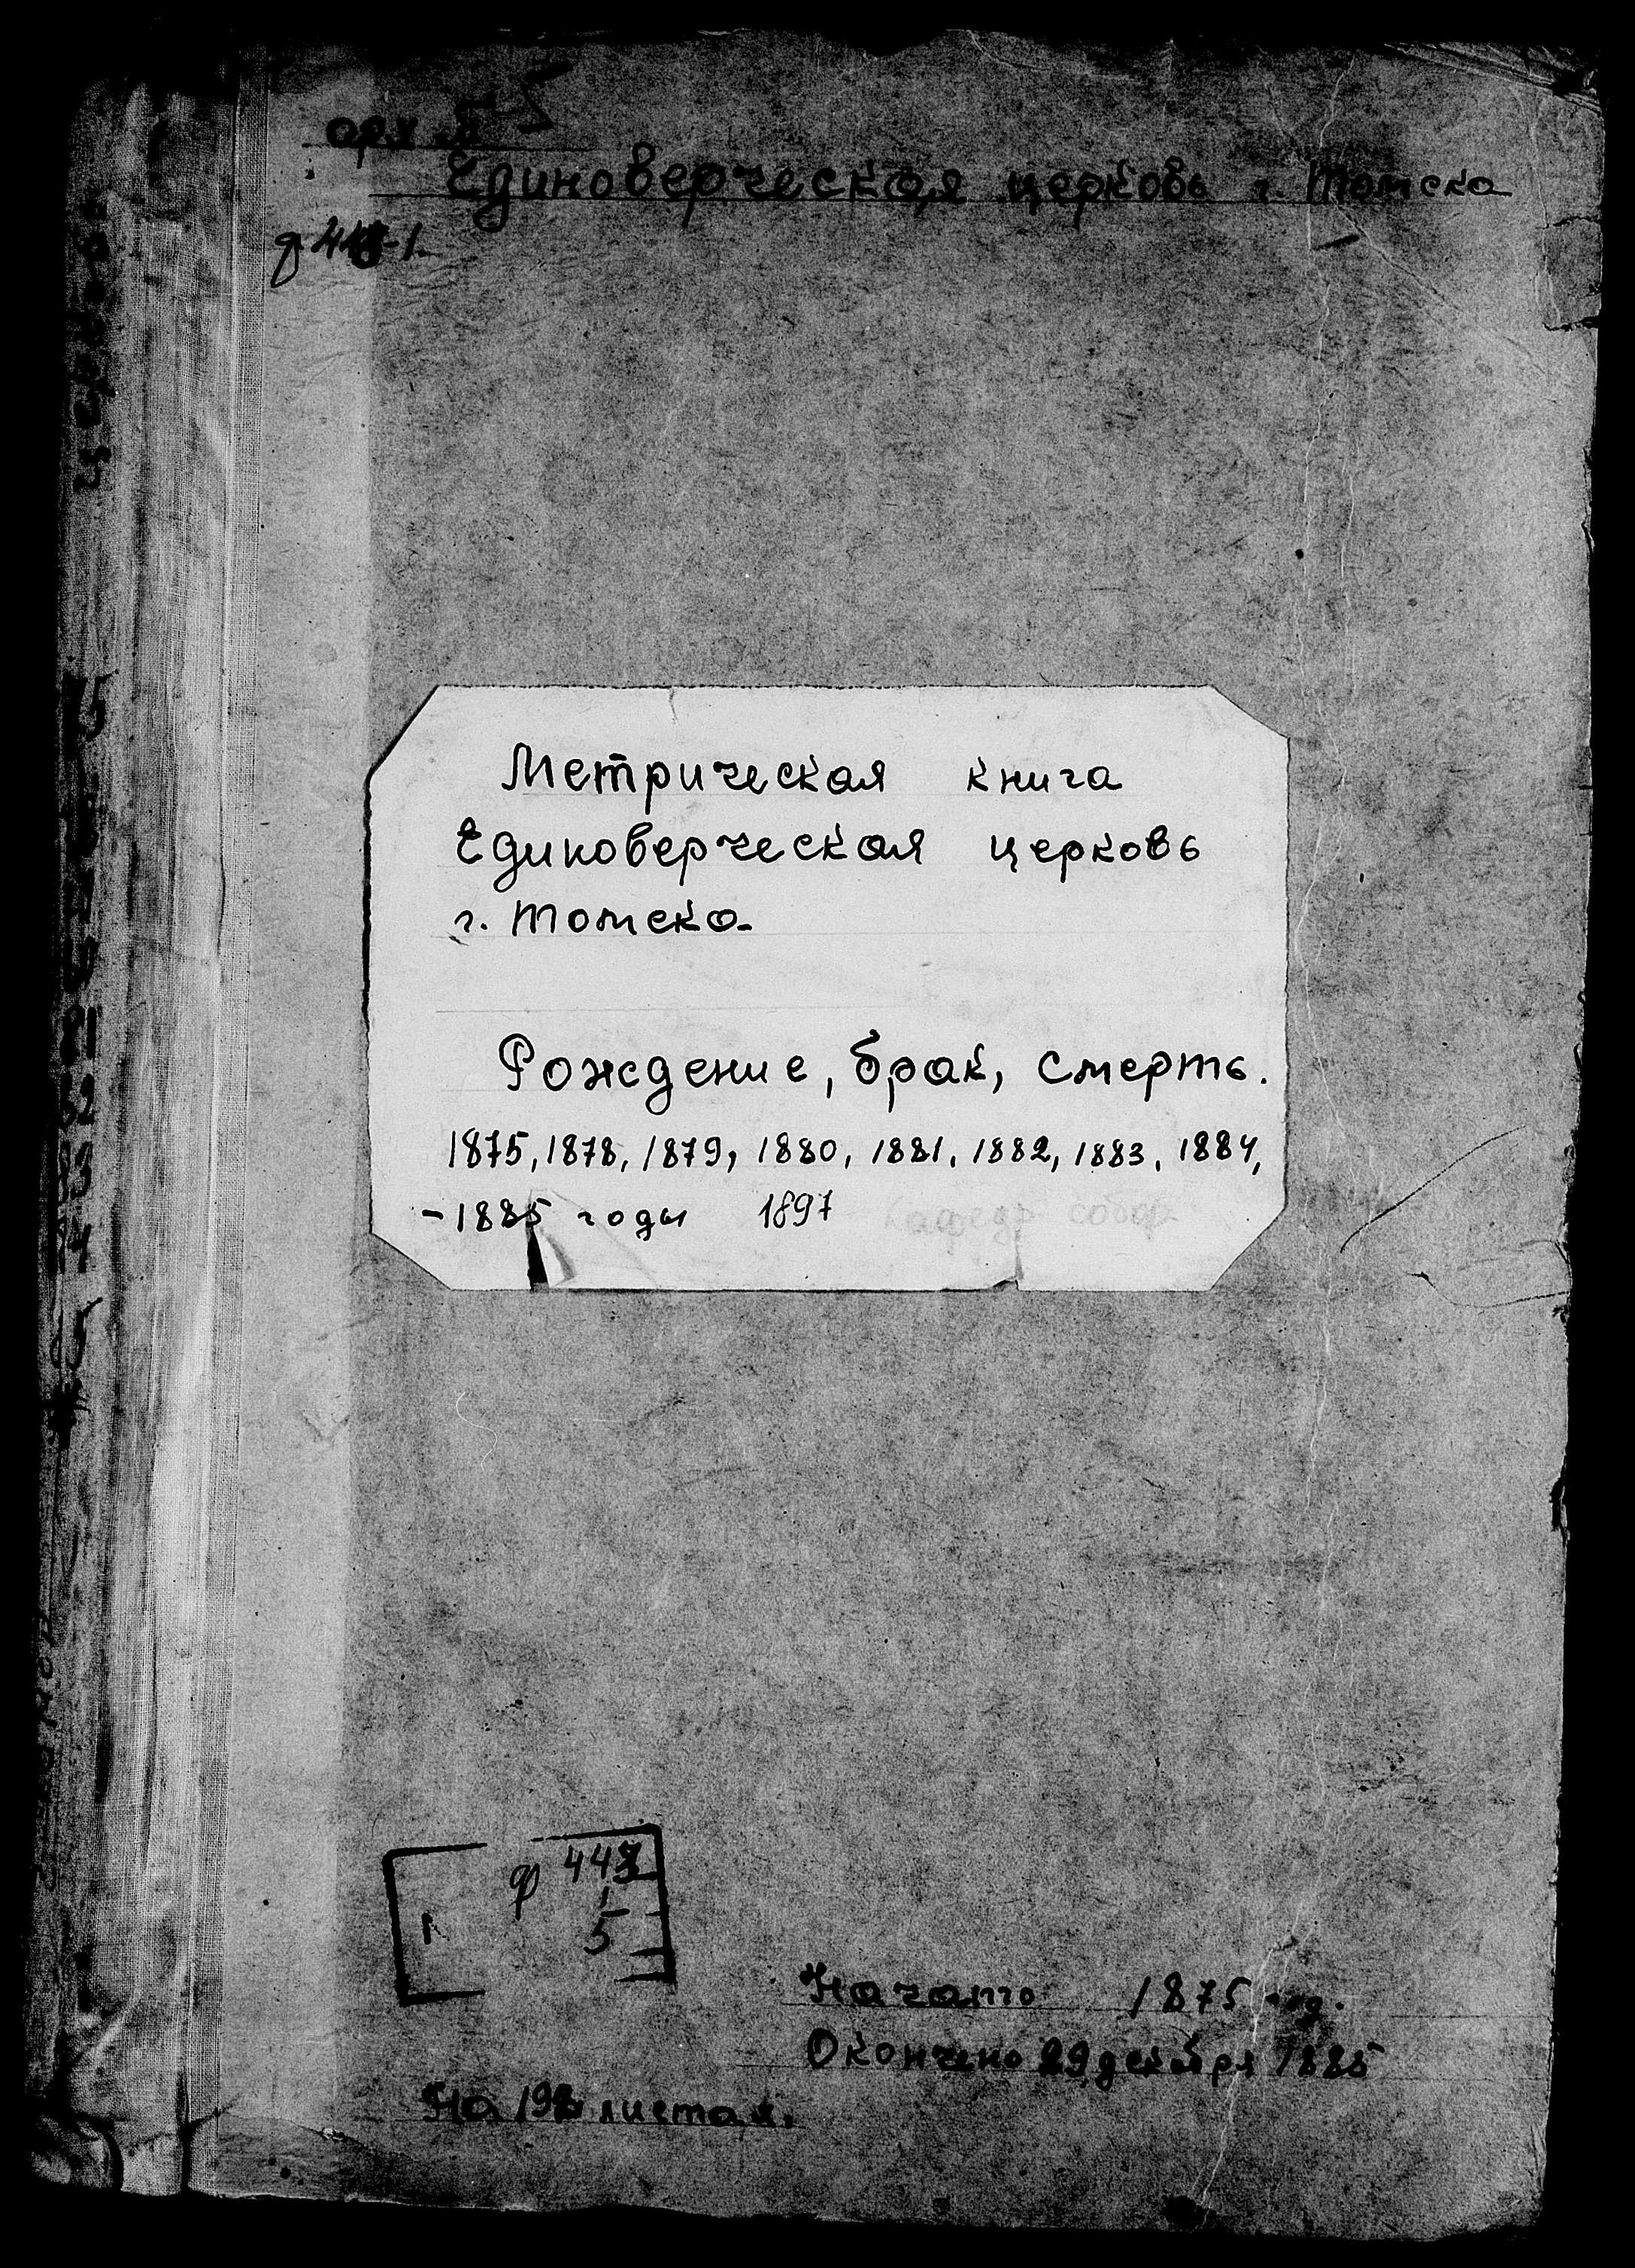 Единоверческая церковь г. Томска
Метрическая книга
Единоверческая церковь
г. Томска
Рождение, брак, смерть.
1875, 1878, 1879, 1880, 1881, 1882, 1883, 1884,
-1885 годы 1897
собор
ф 443
1
5
Начато 1875 год.
Окончено 29 декабря 1885
На листах.